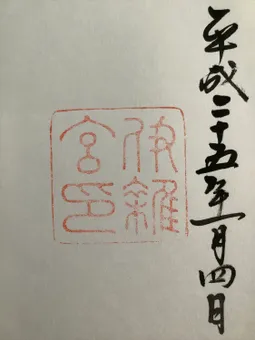 平成二十五年一月四日
伊雜
宮印